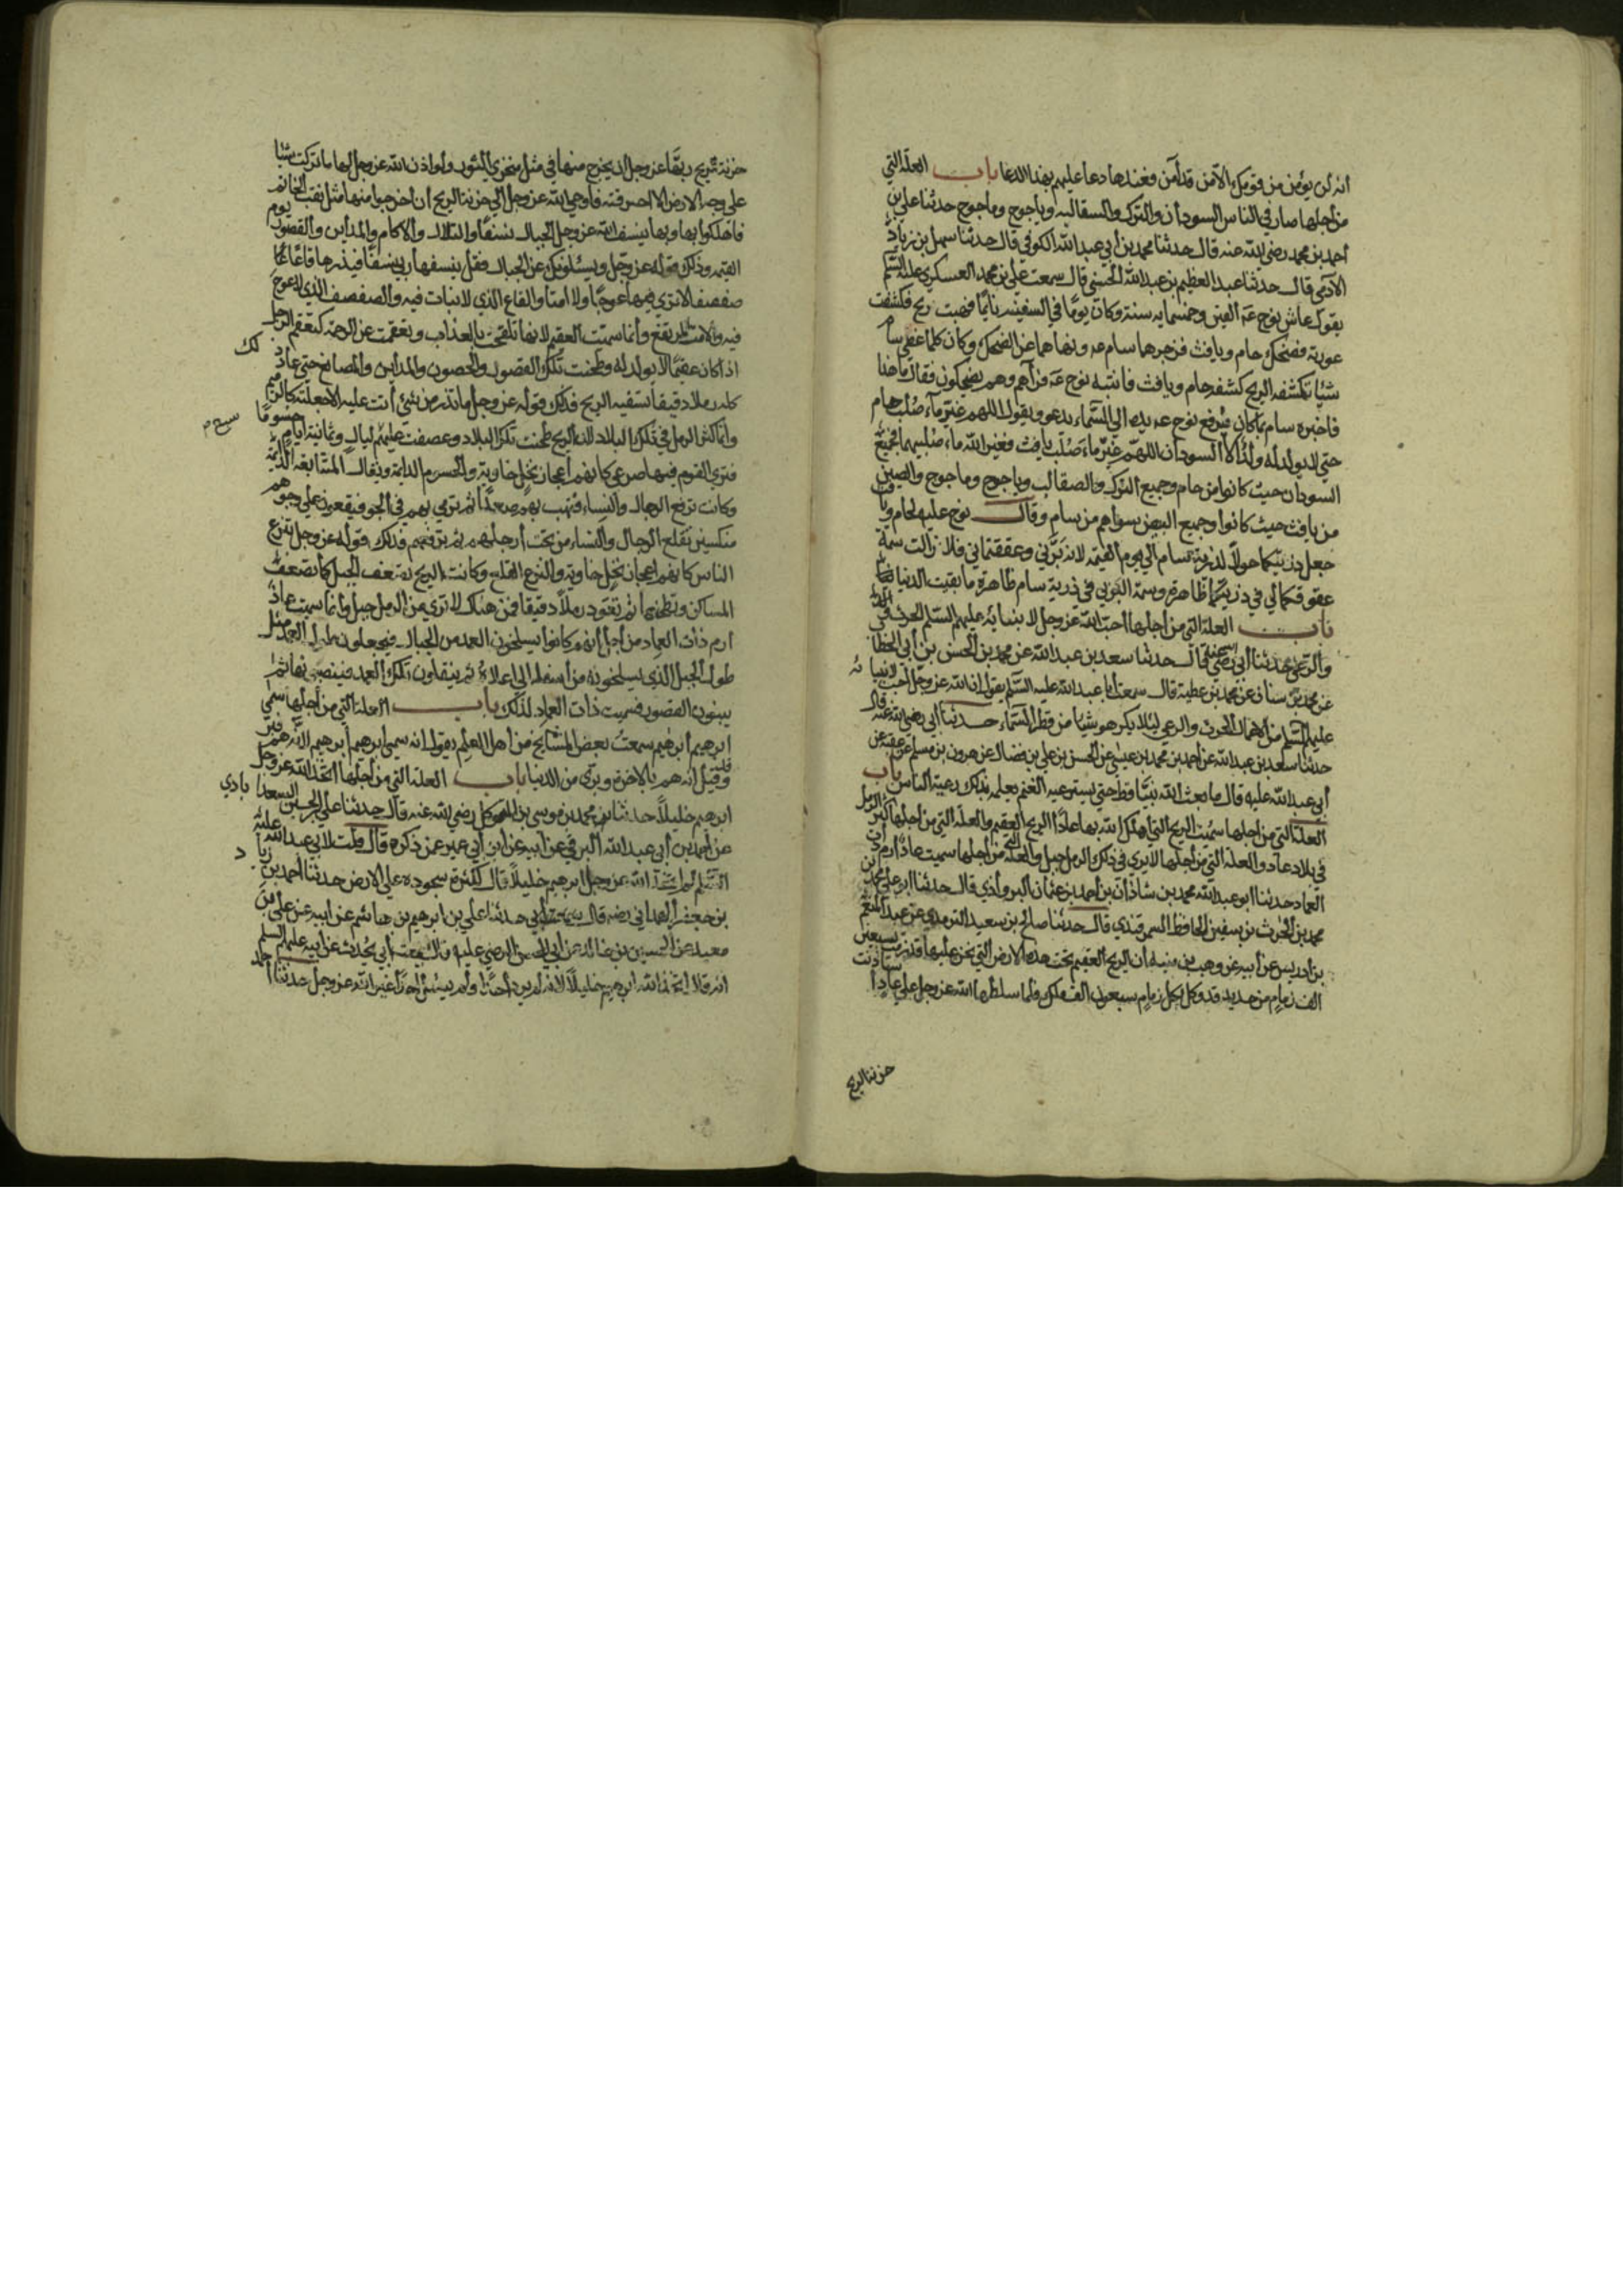 أنه لن يؤمن من قومك الا من قد آمن فعندها دعا عليهم بهذا الدعا باب العلة التي
من أجلها صار في الناس السودان والترك والسقالبه وياجوج وماجوج حدثنا علي بن
أحمد بن محمد رضي الله عنه قال حدثنا محمد بن أبي عبد الله الكوفي قال حدثنا سهل بن زياد
الآدمي قال حدثنا عبد العظيم بن عبد الله الحسني قال سمعت علي بن محمد العسكري عليه السلم
يقول عاش نوح عه الفين وخمسمايه سنة وكان يومًا في السفينه نايمًا فهبت ريح فكشفت
عورته فضحك حام ويافث فزجرهما سام عه ونهاهما عن الضحك وكان كلما غطى سام
شيئًا تكشفه الريح كشفه حام ويافث فانتبه نوح عه فرآهم وهم يضحكون فقال ما هذا
فاخبره سام بما كان فرفع نوح عه يده الى السماء يدعو ويقول اللهم غيّر ماء صُلب حام
حتى لا يولد له ولد الا السودان اللهم غيّر ماء صُلب يافث فغير الله ماء صُلبيهما فجميع
السودان حيث كانوا من حام وجميع الترك والصقالب وياجوج وماجوج والصين
من يافث حيث كانوا وجميع البيض سواهم من سام وقال نوح عليه لحام ويافث
جعل ذريتكما خولاً لذرية سام الى يوم القيمه لانه بَرّني وعققتماني فلا زالت سمة
عقوقكما لي في ذريتكما ظاهرة وسمة البر بي في ذرية سام ظاهرة ما بقيت الدنيا
باب العلة التي من أجلها أحبّ الله عز وجل لانبيائه عليهم السلم الحرث
والرعي حدثنا أبي رضي الله عنه قال حدثنا سعد بن عبد الله عن محمد بن الحسن بن أبي الخطا
عن محمد بن سنان عن محمد بن عطية قال سمعت أبا عبد الله عليه السلم يقول ان الله عز وجل أحب لانبيا ئه
عليهم السلم من الأعمال الحرث والرعي لئلا يكرهوا شيئا من قطر السماء حدثنا أبي رضي الله عنه قال
حدثنا سعد بن عبد الله عن أحمد بن محمد بن عيسى عن الحسن بن علي بن فضال عن هرون بن مسلم عن عقبه عن
أبي عبد الله عليه قال ما بعث الله نبيًا قط حتى يسترعيه الغنم يعلمه بذلك رعية الناس باب
العلة التي من أجلها سُميت الريح التي اهلك الله بها عادًا الريح العقيم والعلة التي من اجلها كثر الرمل
في بلاد عاد والعلة التي من أجلها لا يرى في ذلك الرمل جبل والعلة التي من أجلها سميت عاد ارم ذات
العماد حدثنا ابو عبد الله محمد بن شاذان بن أحمد بن عثمان البروأذي قال حدثنا ابو علي محمد
محمد بن الحرث بن سفين الحافظ السمرقندي قال حدثنا صالح بن سعيد الترمدي عن عبد المنعم
بن أدريس عن أبيه عن وهب بن منبه أن الريح العقيم تحت هذه الارض التي نحن عليها قد زمت بسبعين
الف زمام من حديد قد وكل بكل زمام سبعون الف ملك فلما سلطها الله عز وجل على عاد
خزنة الريح
خزنة الريح ربها عز وجل ان يخرج منها في مثل منخري الثور ولو اذن الله عز وجل لها ما تركت شيئا
على وجه الارض الا احرقته فاوحى الله عز وجل الى خزنة الريح أن أخرجوا منها مثل ثقب الخاتم
فاهلكوا بها وبها ينسف الله عز وجل الجبال نسفًا والتلال والاكام والمدأين والقصور يوم
القيمه وذلك قوله عز وجل ويسئلونك عن الجبال فقل ينسفها ربي نسفًا فيذرها قاعًا
صفصفا لا ترى فيها عوجًا ولا امتا والقاع الذي لا نبات فيه والصفصف الذي لا عوج
فيه والامت المرتفع وأنما سميت العقيم لانها تلقحت بالعذاب وتعقمت عن الرحمة كتعقم الرجل
اذا كان عقيمًا لا يولد له وطحنت تلك القصور والحصون والمدأين والمصانع حتى عاد ذلك
كله رملا دقيقًا تسفيه الريح فذلك قوله عز وجل ما تذر من شئ أتت عليه الا جعلته كالرميم
وأنما كثر الرمل في تلك البلاد لان الريح طحنت تلك البلاد وعصفت عليهم ليال وثمانية ايام حسومًا
فترى القوم فيها صرعى كانهم أعجاز نخل خاوية والحسوم الدايمة ويقال المتتابعه الدايمة
وكانت ترفع الرجال والنساء فتهب بهم صعدًا ثم ترمي بهم في الجو فيقعون على وجوههم
منكسين تقلع الرجال والنساء من تحت أرجلهم ثم ترفعهم فذلك قوله عز وجل تنزع
الناس كانهم اعجاز نخل خاوية والنزع القلع وكانت الريح تعصف الجبل كما تعصف
المساكن وتطحنها ثم تعود رملاً دقيقا فمن هناك لا ترى من الرمل جبل وانما سميت عاد
ارم ذات العماد من أجل أنهم كانوا يسلخون العمد من الجبال فيجعلون طول العمد مثل
طول الجبل الذي يسلخونه من أسفله الى اعلاه ثم ينقلون تلك العمد فينصبونها ثم
يبنون القصور فسميت ذات العماد لذلك باب العلة التي من أجلها سمي
ابرهيم أبرهيم سمعت بعض المشايخ من أهل العلم يقول انه سمي ابرهيم أبرهيم لانه هم فبرّ
وقيل انه هم بالاخرة وبرّي من الدنيا باب العلة التي من أجلها اتخذ الله عز وجل
ابرهيم خليلاً حدثنا محمد بن موسى بن المتوكل رضي الله عنه قال حدثنا علي الحسين السعدآ بادي
عن أحمد بن أبي عبد الله البرقي عن أبيه عن ابن أبي عمير عن ذكره قال قلت لابي عبد الله عليه
السلم لم اتخذ الله عز وجل ابرهيم خليلاً قال لكثرة سجوده على الارض حدثنا أحمد بن زيا د
بن جعفر الهمداني رضه قال حدثنا علي بن ابرهيم بن هاشم عن ابيه عن علي بن
معبد عن الحسين بن خالد عن أبي الحسن الرضي عليه قال سمعت أبي يُحدث عن أبيه عليهم السلم
انه قال اتخذ الله ابرهيم خليلاً لانه لم يرد أحدًا ولم يسئل أحدًا غير الله عز وجل حدثنا أحمد